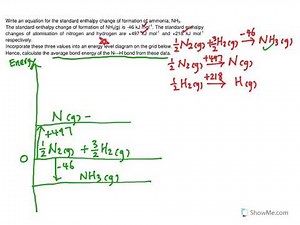 Write an equation for the standard enthalpy change of formation of ammonia, NH₃.
The standard enthalpy change of formation of NH₃(g) is -46 kJ mol⁻¹. The standard enthalpy
changes of atomisation of nitrogen and hydrogen are +497 kJ mol⁻¹ and +218 kJ mol⁻¹
respectively.
Incorporate these three values into an energy level diagram on the grid below.
Hence, calculate the average bond energy of the N—H bond from these data.
½N₂(g) + 3/2 H₂(g) -46 → NH₃(g)
½N₂(g) +497 → N(g)
½H₂(g) +218 → H(g)
Energy
N(g)
+497
½N₂(g) + 3/2 H₂(g)
0
-46
NH₃(g)
ShowMe.com